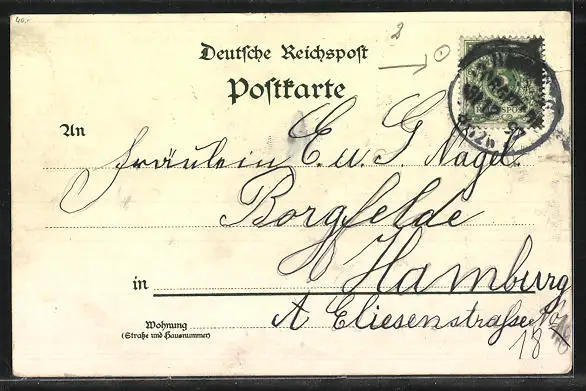 40.-
2
Deutsche Reichspost
Postkarte
An
Fräulein E. u. G. Nagel.
Borgfelde
in Hamburg
A Eliesenstraße No
18
Wohnung
(Straße und Hausnummer)